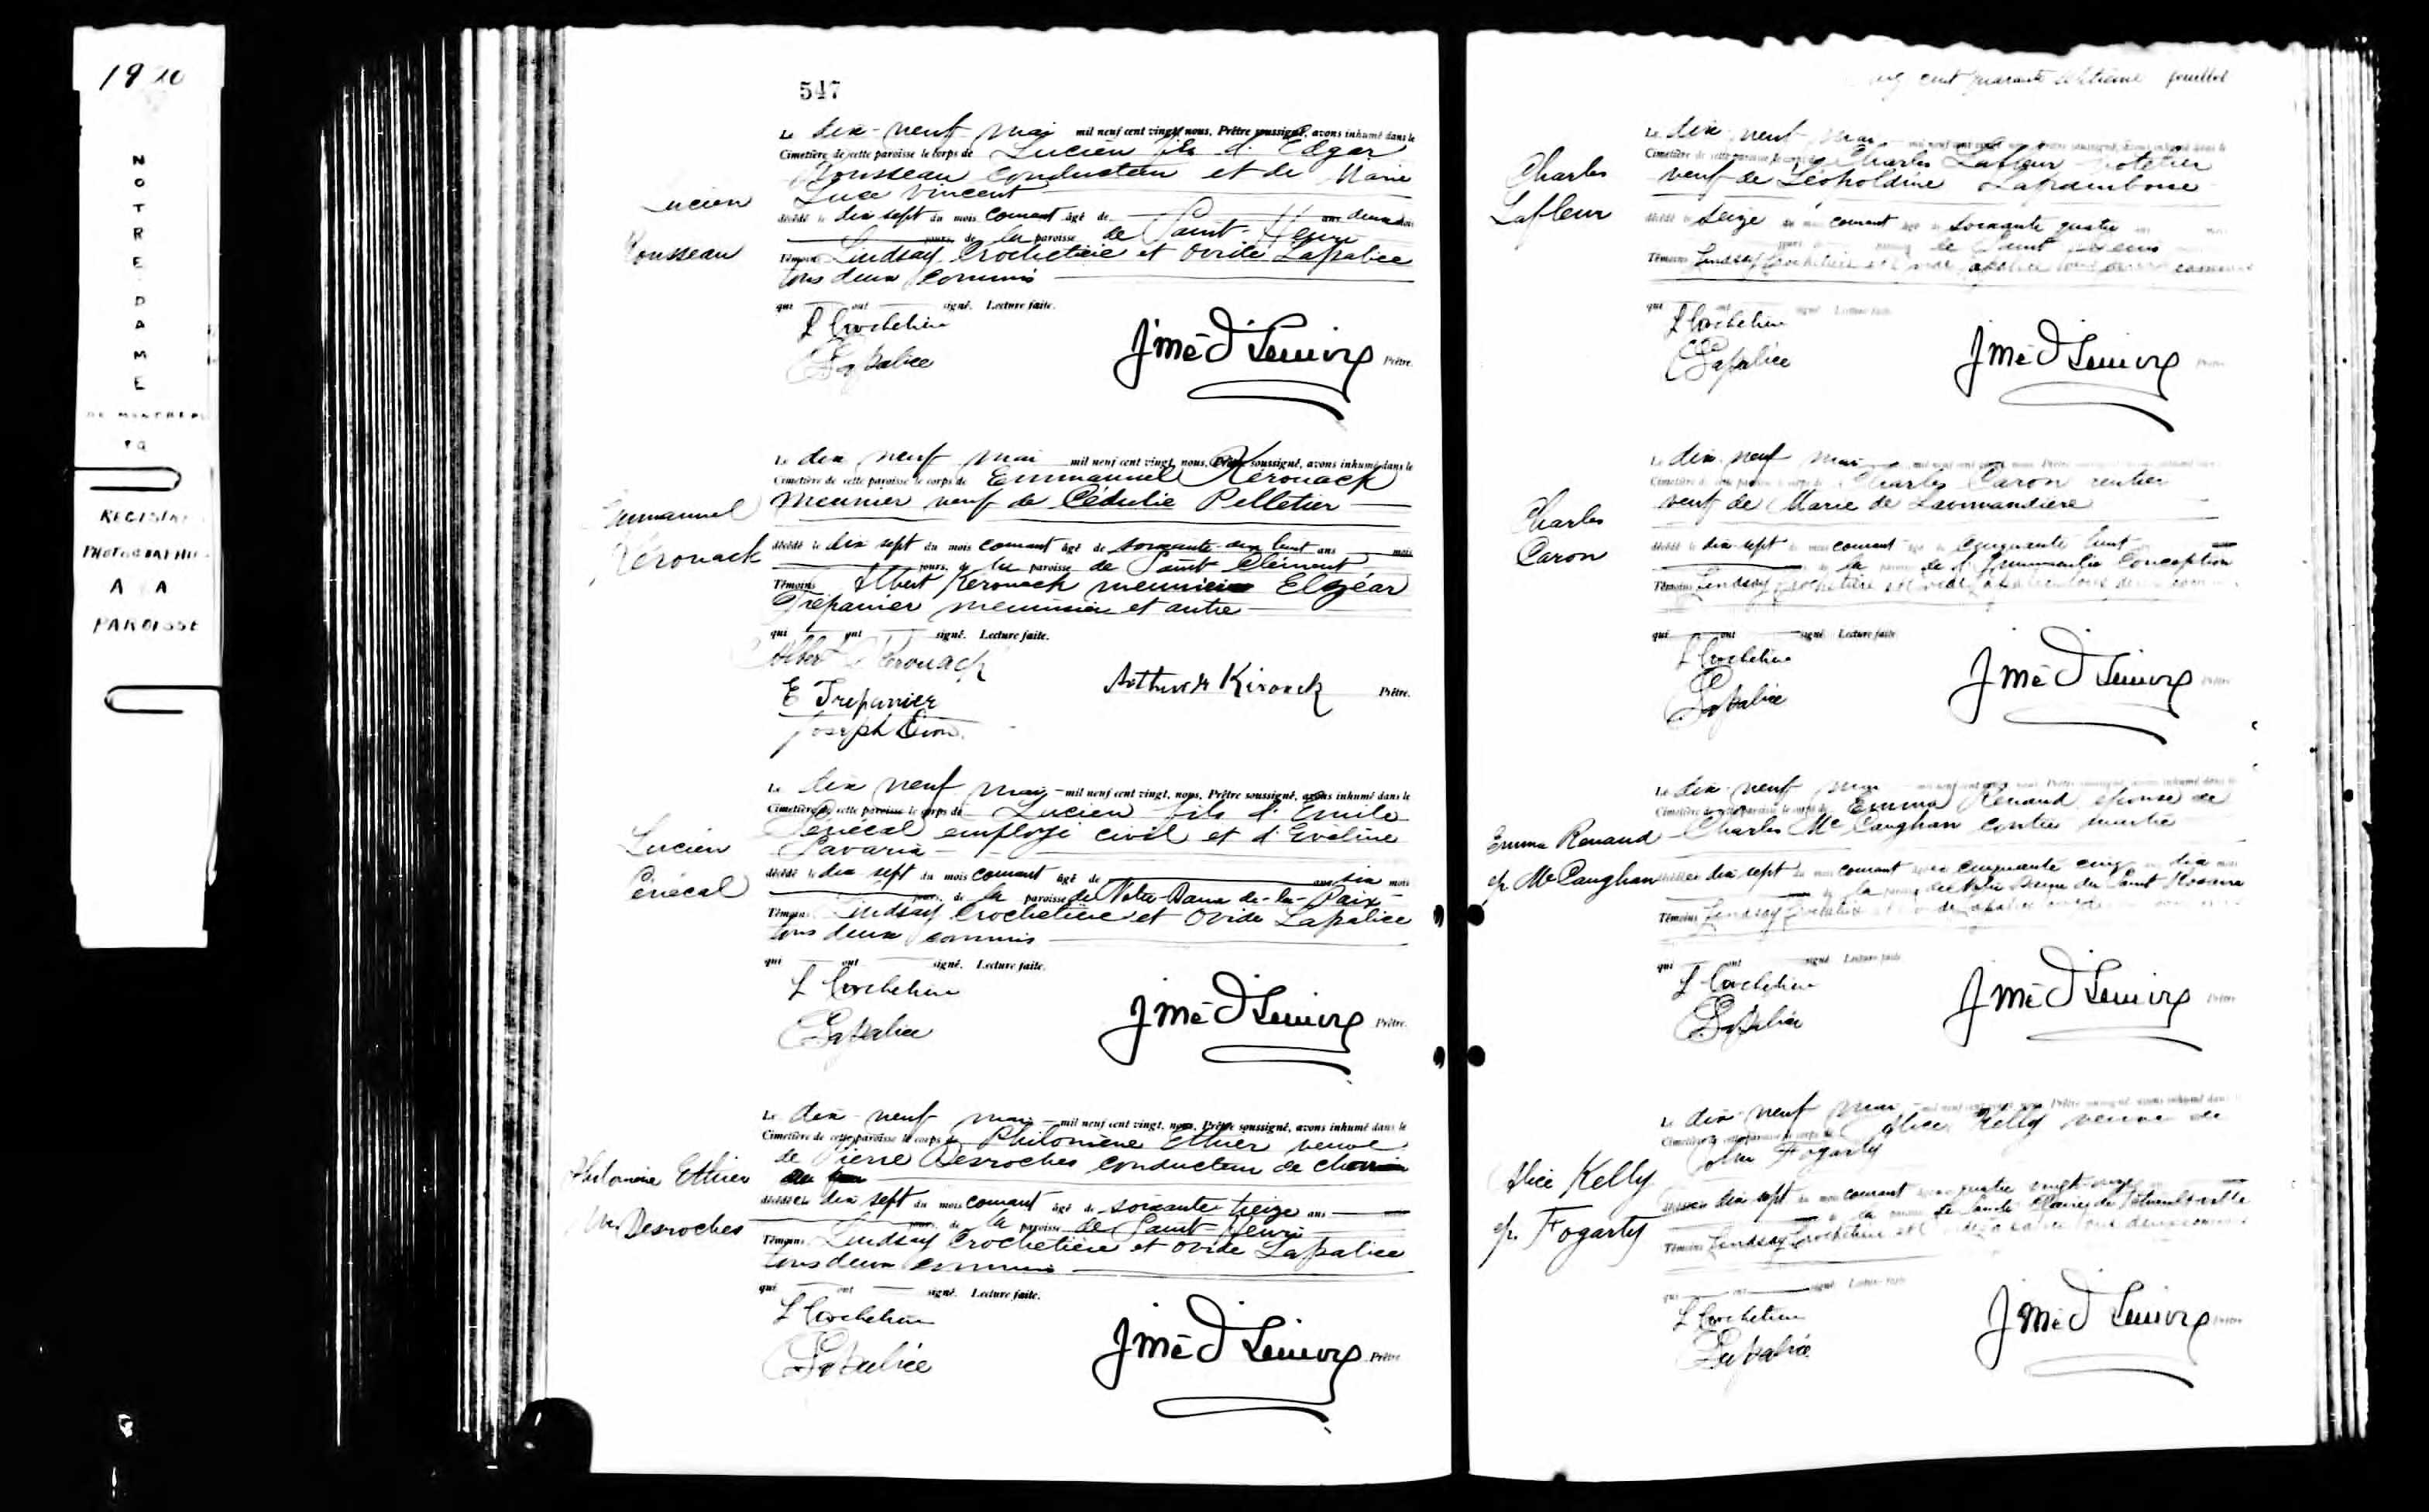 19 20
NOTRE-DAME
DE MONTREAL
PQ
REGISTRE
PHOTOGRAPHIE
A LA
PAROISSE
547
Lucien
Rousseau
Le dix-neuf mai mil neuf cent vingt, nous, Prêtre soussigné, avons inhumé dans le
Cimetière de cette paroisse le corps de Lucien fils d'Edgar
Rousseau conducteur et de Marie
Luce Vincent
décédé le dix sept du mois courant âgé de ans deux mois
jours, de la paroisse de Saint-Henri
Témoins Lindsay Crochetière et Ovide Lapalice
tous deux commis
qui ont signé. Lecture faite.
L Crochetière
O Lapalice
Prêtre.
Emmanuel
Kérouack
Le dix neuf mai mil neuf cent vingt, nous, Prêtre soussigné, avons inhumé dans le
Cimetière de cette paroisse le corps de Emmanuel Kérouack
meunier veuf de Cédulie Pelletier
décédé le dix sept du mois courant âgé de soixante dix huit ans mois
jours, de la paroisse de Saint Clément
Témoins Albert Kérouack Elzéar
Trépanier et autre
qui ont signé. Lecture faite.
Albert Kérouack
E Trepanier
Joseph Dion
Prêtre.
Lucien
Sénécal
Le dix neuf mai mil neuf cent vingt, nous, Prêtre soussigné, avons inhumé dans le
Cimetière de cette paroisse le corps de Lucien fils d'Emile
Sénécal employé civil et d'Eveline
Savaria
décédé le dix sept du mois courant âgé de ans six mois
jours, de la paroisse de Notre-Dame-de-la-Paix
Témoins Lindsay Crochetière et Ovide Lapalice
tous deux commis
qui ont signé. Lecture faite.
L Crochetière
O Lapalice
Prêtre.
Philomène Ethier
Ve Desroches
Le dix-neuf mai mil neuf cent vingt, nous, Prêtre soussigné, avons inhumé dans le
Cimetière de cette paroisse le corps de Philomène Ethier veuve
de Pierre Desroches conducteur de
décédée le dix sept du mois courant âgé de soixante treize ans
jours, de la paroisse de Saint-Henri
Témoins Lindsay Crochetière et Ovide Lapalice
tous deux commis
qui ont signé. Lecture faite.
L Crochetière
O Lapalice
Prêtre
cent quarante septième feuillet
Charles
Lafleur
Le dix neuf mai
Charles Lafleur hôtelier
veuf de Léopoldine Laframboise
décédé le seize du mois courant âgé de soixante quatre
de Saint
Témoins Lindsay Crochetière et Ovide Lapalice tous deux commis
qui ont signé. Lecture faite
L Crochetière
O Lapalice
Charles
Caron
Le dix neuf mai
Charles Caron rentier
veuf de Marie de Lavimandière
décédé le dix sept du mois courant âgé de cinquante huit
de la paroisse de l'Immaculée Conception
Témoins Lindsay Crochetière et Ovide Lapalice tous deux commis
qui ont signé Lecture faite
L Crochetière
O Lapalice
Emma Renaud
ép. McCaughan
Le dix-neuf mai
Emma Renaud épouse de
Charles McCaughan contre maître
décédée le dix sept du mois courant âgée de cinquante cinq ans dix mois
de la paroisse de Notre Dame du Saint Rosaire
Témoins Lindsay Crochetière et Ovide Lapalice
qui ont signé Lecture faite
L Crochetière
O Lapalice
Alice Kelly
ép. Fogarty
Le dix-neuf mai
Alice Kelly veuve de
John Fogarty
décédée le dix sept du mois courant âgée de quatre vingt onze
de la paroisse de Sainte Claire de Tétreaultville
Témoins Lindsay Crochetière et Ovide Lapalice tous deux commis
qui ont signé Lecture faite
L Crochetière
O Lapalice